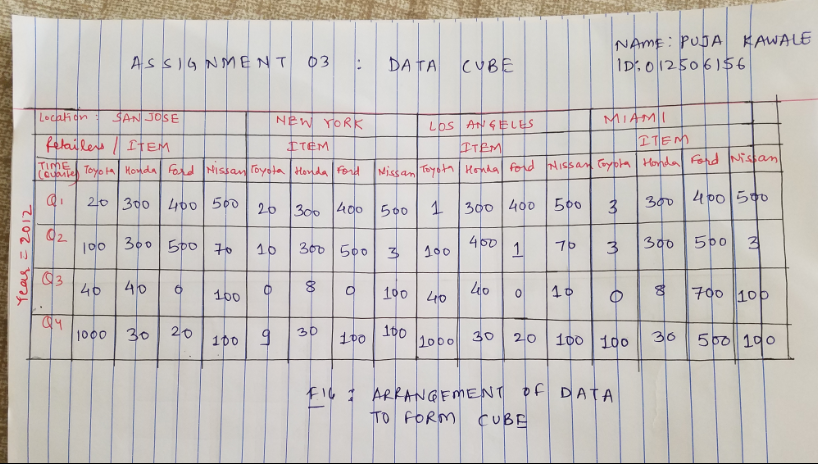 NAME: PUJA KAWALE
ASSIGNMENT 03 : DATA CUBE
ID: 012506156
Location : SAN JOSE NEW YORK LOS ANGELES MIAMI
Retailers / ITEM ITEM ITEM ITEM
TIME (Quarter) Toyota Honda Ford Nissan Toyota Honda Ford Nissan Toyota Honda Ford Nissan Toyota Honda Ford Nissan
Year = 2012
Q1 20 300 400 500 20 300 400 500 1 300 400 500 3 300 400 500
Q2 100 300 500 70 10 300 500 3 100 400 1 70 3 300 500 3
Q3 40 40 0 100 0 8 0 100 40 40 0 10 0 8 700 100
Q4 1000 30 20 100 9 30 100 100 1000 30 20 100 100 30 500 100
FIG : ARRANGEMENT OF DATA
TO FORM CUBE